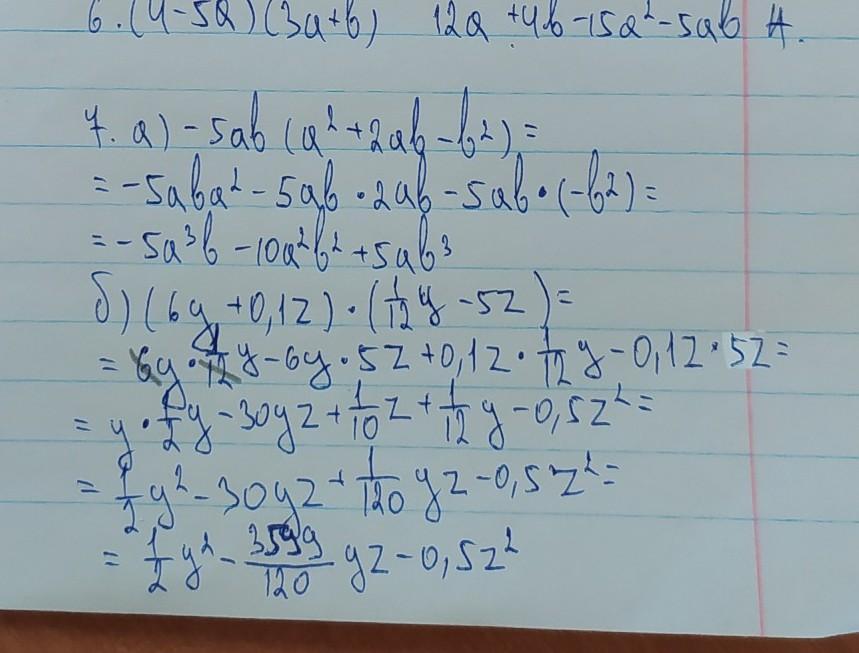 6. (4-5a)(3a+b) 12a+4b-15a²-5ab A.
7. а) -5ab (a²+2ab-b²)=
= -5aba² - 5ab · 2ab - 5ab · (-b²) =
= -5a³b - 10a²b² + 5ab³
б) (6y+0,1z) · (1/12 y - 5z) =
= 6y · 1/12 y - 6y · 5z + 0,1z · 1/12 y - 0,1z · 5z =
= y · 1/2 y - 30yz + 1/10 z + 1/12 y - 0,5z² =
= 1/2 y² - 30yz + 1/120 yz - 0,5z² =
= 1/2 y² - 3599/120 yz - 0,5z²